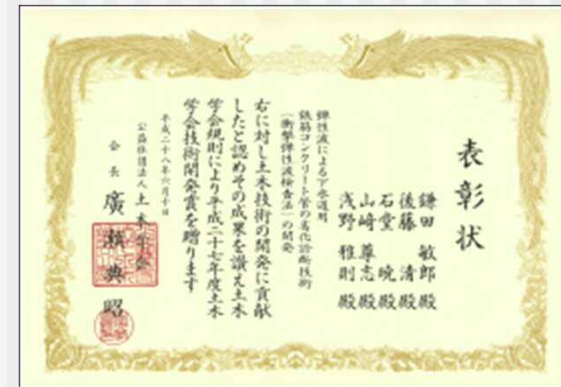 表彰状
鎌田 敏郎 殿
後藤 清 殿
石堂 暁 殿
山崎 尊志 殿
浅野 雅則 殿
弾性波による下水道用
鉄筋コンクリート管の劣化診断技術
(衝撃弾性波検査法)の開発
右に対し土木技術の開発に貢献
したと認めその成果を讃え土木
学会規則により平成二十七年度土木
学会技術開発賞を贈ります
平成二十八年六月十日
公益社団法人 土木学会
会長 廣瀬 典昭